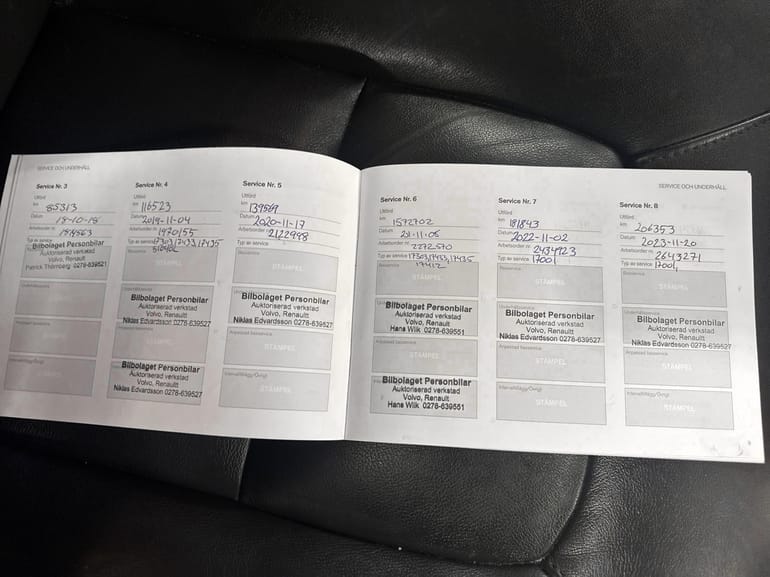 SERVICE OCH UNDERHÅLL
Service Nr. 3
Utförd
km 85313
Datum 18-10-18
Arbetsorder nr.
Typ av service
Bilbolaget Personbilar
Auktoriserad verkstad
Volvo, Renault
Patrick Thörnberg 0278-639521
Service Nr. 4
Utförd
km 116523
Datum 2019-11-04
Arbetsorder nr. 1970155
Typ av service 17303/17433/17435
STÄMPEL
Bilbolaget Personbilar
Auktoriserad verkstad
Volvo, Renault
Niklas Edvardsson 0278-639527
Bilbolaget Personbilar
Auktoriserad verkstad
Volvo, Renault
Niklas Edvardsson 0278-639527
Service Nr. 5
Utförd
km 139569
Datum 2020-11-17
Arbetsorder nr. 2122998
Typ av service
Basservice
STÄMPEL
Bilbolaget Personbilar
Auktoriserad verkstad
Volvo, Renault
Niklas Edvardsson 0278-639527
Anpassad basservice
STÄMPEL
Intervalltillägg/Övrigt
STÄMPEL
SERVICE OCH UNDERHÅLL
Service Nr. 6
Utförd
km 1572702
Datum 21-11-05
Arbetsorder nr. 2272570
Typ av service 17303/17433/17435
17412
Basservice
STÄMPEL
Bilbolaget Personbilar
Auktoriserad verkstad
Volvo, Renault
Hans Wiik 0278-639551
Bilbolaget Personbilar
Auktoriserad verkstad
Volvo, Renault
Hans Wiik 0278-639551
Service Nr. 7
Utförd
km 181843
Datum 2022-11-02
Arbetsorder nr. 2434923
Typ av service 17001
Basservice
STÄMPEL
Underhållsservice
Bilbolaget Personbilar
Auktoriserad verkstad
Volvo, Renault
Niklas Edvardsson 0278-639527
Anpassad basservice
STÄMPEL
Intervalltillägg/Övrigt
STÄMPEL
Service Nr. 8
Utförd
km 206353
Datum 2023-11-20
Arbetsorder nr. 2643271
Typ av service 17001
Basservice
STÄMPEL
Underhållsservice
Bilbolaget Personbilar
Auktoriserad verkstad
Volvo, Renault
Niklas Edvardsson 0278-639527
Anpassad basservice
STÄMPEL
Intervalltillägg/Övrigt
STÄMPEL